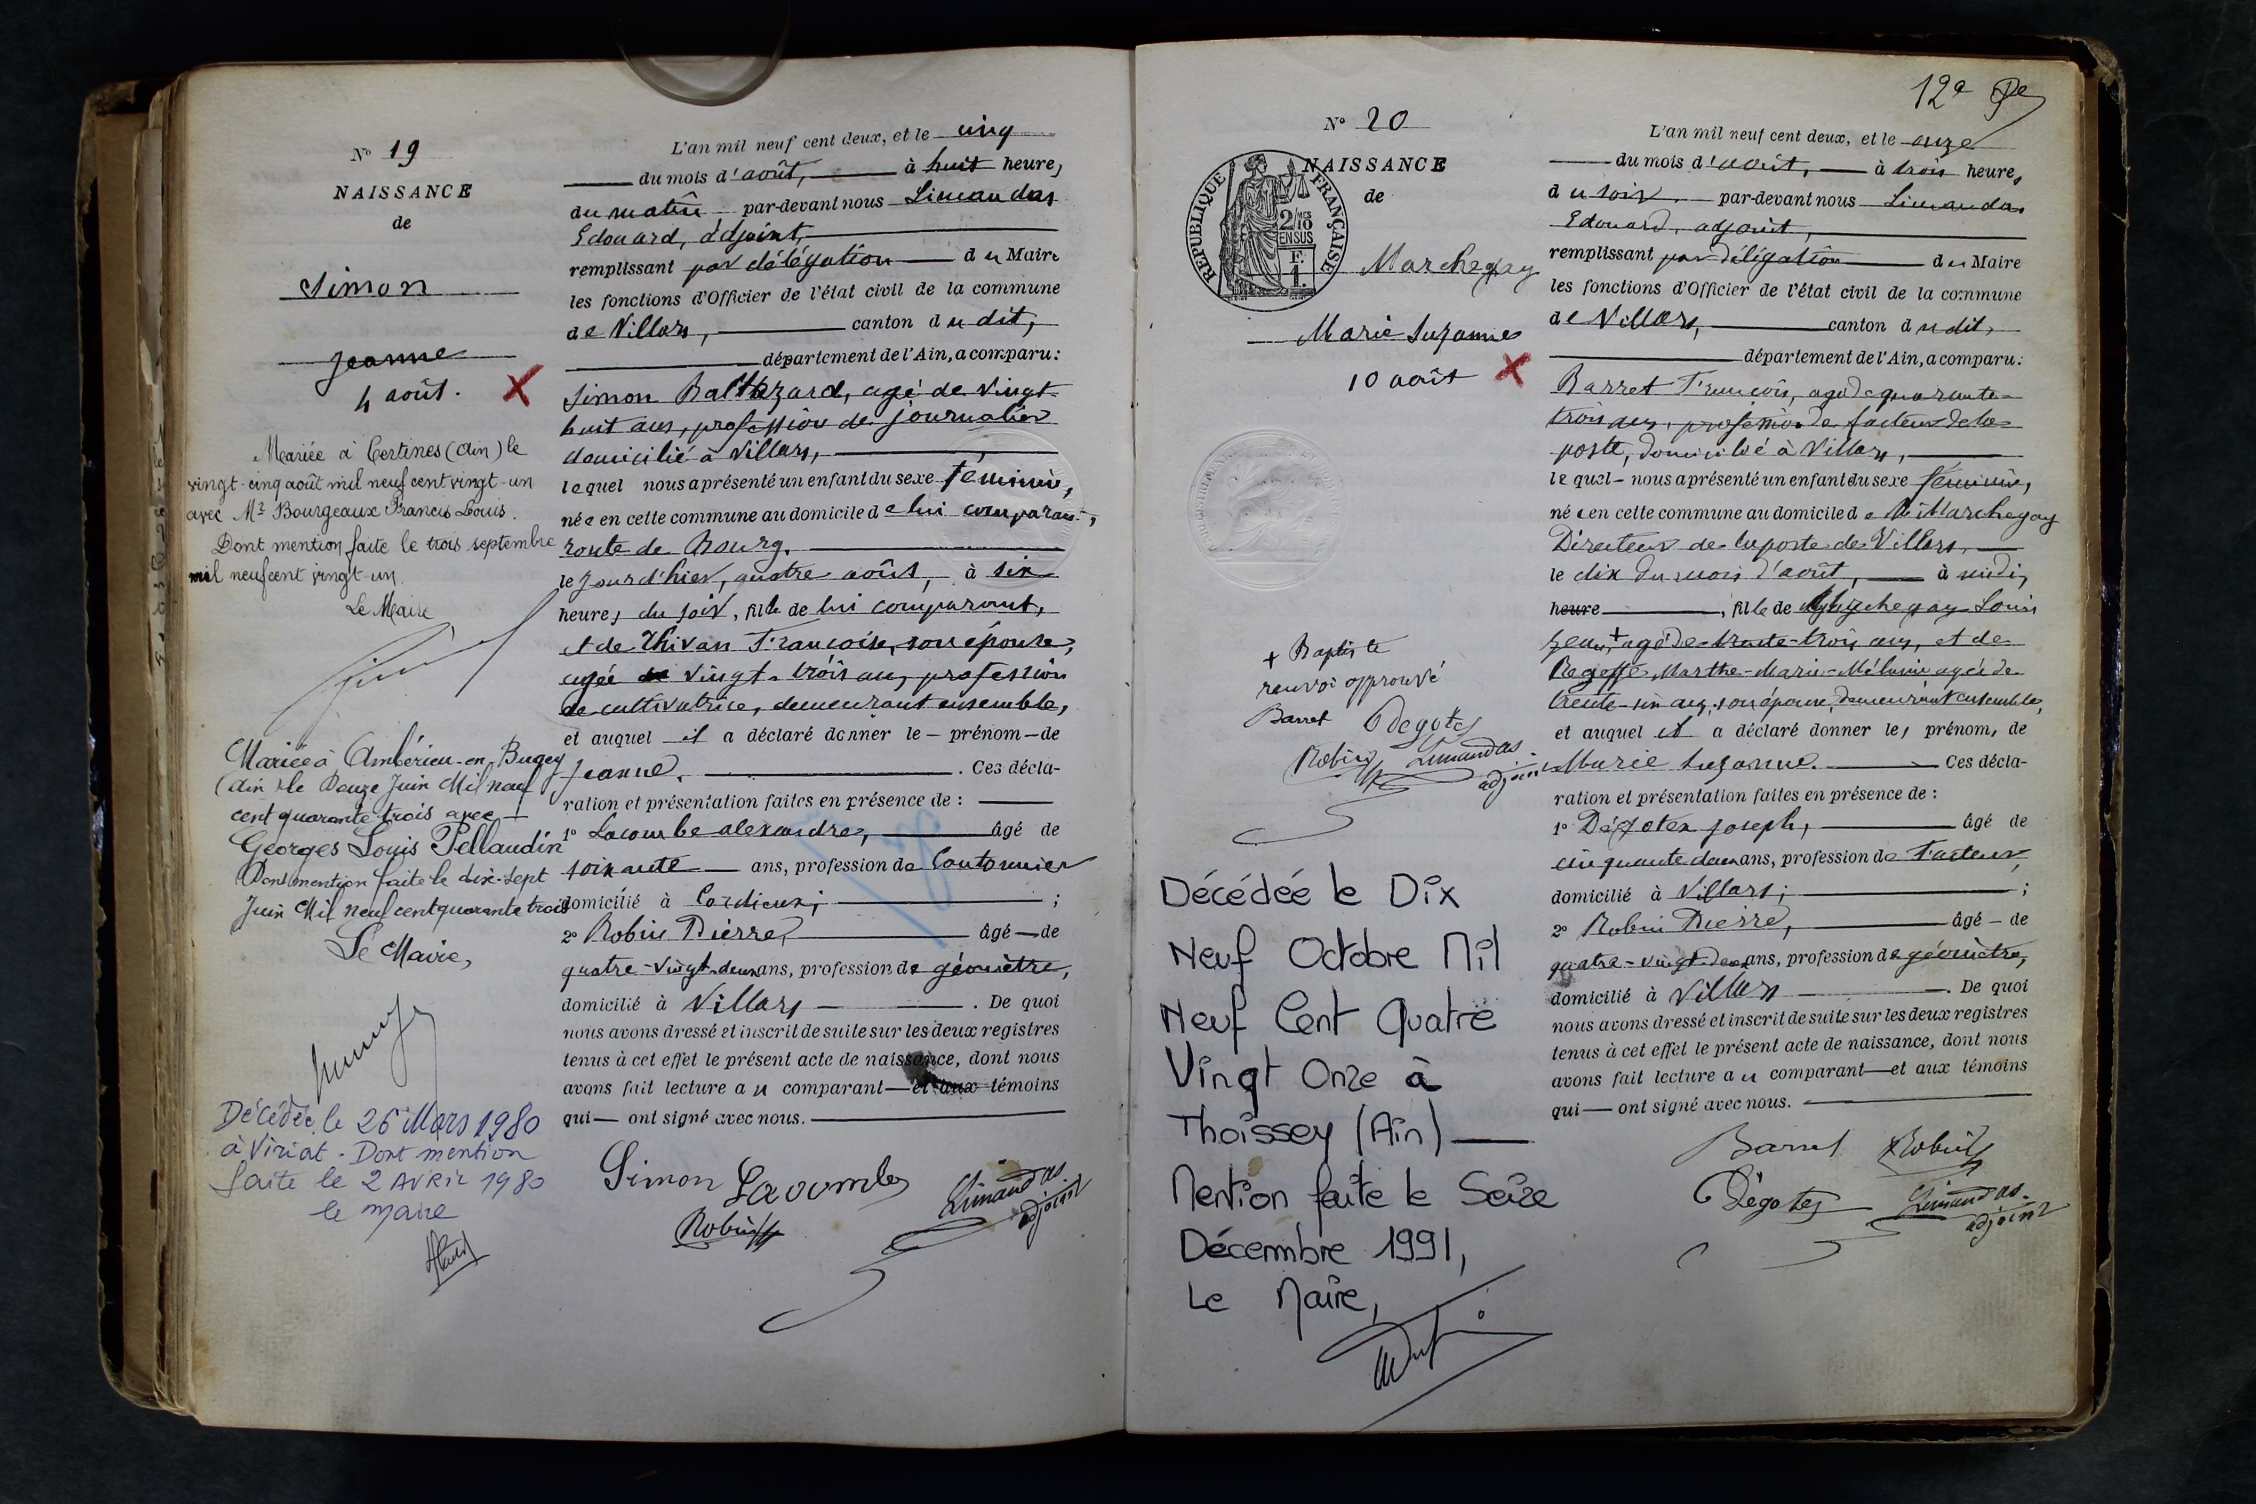 N° 19
NAISSANCE
de
Simon
Jeanne
4 août.
Mariée à Certines (Ain) le
vingt-cinq août mil neuf cent vingt-un
avec Mr Bourgeaux Francis Louis.
Dont mention faite le trois septembre
mil neuf cent vingt-un.
Le Maire
Mariée à Ambérieu-en-Bugey
(Ain) le Douze Juin Mil neuf
cent quarante trois avec
Georges Louis Pellaudin
Dont mention faite le dix-sept
Juin Mil neuf cent quarante trois
Le Maire,
Décédée le 26 Mars 1980
à Viriat. Dont mention
faite le 2 AVRIL 1980
le maire
L'an mil neuf cent deux, et le cinq
du mois d'août, à huit heures
du matin par-devant nous Limandas
Edouard, adjoint,
remplissant par délégation du Maire
les fonctions d'Officier de l'état civil de la commune
de Villars, canton du dit,
département de l'Ain, a comparu:
Simon Balthazard, agé de vingt-
huit ans, profession de journalier
domicilié à Villars,
lequel nous a présenté un enfant du sexe féminin,
née en cette commune au domicile de lui comparant,
route de Bourg.
le jour d'hier, quatre août, à six
heures du soir, fille de lui comparant,
et de Thivan Françoise, son épouse,
agée de vingt-trois ans, profession
de cultivatrice, demeurant ensemble,
et auquel il a déclaré donner le prénom de
Jeanne. Ces décla-
ration et présentation faites en présence de :
1° Lacombe alexandre, âgé de
soixante ans, profession de Cantonnier
domicilié à Cordieux; ;
2° Robin Pierre, âgé de
quatre-vingt-deux ans, profession de géomètre,
domicilié à Villars . De quoi
nous avons dressé et inscrit de suite sur les deux registres
tenus à cet effet le présent acte de naissance, dont nous
avons fait lecture au comparant et aux témoins
qui ont signé avec nous.
Simon Lacombe
Robin
Limandas.
adjoint
12e
N° 20
NAISSANCE
de
REPUBLIQUE FRANÇAISE
2/10
EN SUS
F.
1.
Marchegay
Marie Suzanne
10 août
+ Baptiste
renvoi approuvé
Barret Dégotex
Robin Limandas.
adjoint
Décédée le Dix
Neuf Octobre Mil
Neuf Cent Quatre
Vingt Onze à
Thoissey (Ain)
Mention faite le Seize
Décembre 1991,
Le Maire,
L'an mil neuf cent deux, et le onze
du mois d'août, à trois heures
du soir, par-devant nous Limandas
Edouard, adjoint,
remplissant par délégation du Maire
les fonctions d'Officier de l'état civil de la commune
de Villars, canton du dit,
département de l'Ain, a comparu:
Barret François, agé de quarante-
trois ans, profession de facteur de la
poste, domicilié à Villars,
lequel nous a présenté un enfant du sexe féminin,
née en cette commune au domicile de Mr Marchegay
Directeur de la poste de Villars,
le dix du mois d'août, à midi,
heure , fille de Marchegay Louis
Jean,+ agé de trente-trois ans, et de
Marthe-Marie-Mélanie agée de
trente-un ans, son épouse, demeurant ensemble,
et auquel il a déclaré donner les prénoms de
Marie Suzanne. Ces décla-
ration et présentation faites en présence de :
1° Dégotex Joseph, âgé de
cinquante deux ans, profession de Facteur,
domicilié à Villars; ;
2° Robin Pierre, âgé de
quatre-vingt-deux ans, profession de géomètre,
domicilié à Villars . De quoi
nous avons dressé et inscrit de suite sur les deux registres
tenus à cet effet le présent acte de naissance, dont nous
avons fait lecture au comparant et aux témoins
qui ont signé avec nous.
Barret Robin
Dégotex Limandas.
adjoint